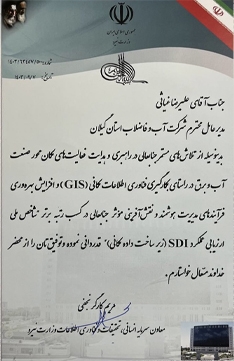 جناب آقای علیرضا غیاثی
مدیرعامل محترم شرکت آب و فاضلاب استان گیلان
بدینوسیله از تلاش‌های مستمر جنابعالی در راهبری و هدایت فعالیت‌های مکان محور صنعت
آب و برق در راستای بکارگیری فناوری اطلاعات مکانی (GIS) و افزایش بهره‌وری
فرآیندهای مدیریت هوشمند و نقش‌آفرینی مؤثر جنابعالی در کسب رتبه برتر "شاخص ملی
ارزیابی عملکرد SDI (زیرساخت داده مکانی)" قدردانی نموده و توفیق‌تان را از محضر
خداوند متعال خواستارم.
مریم کارگر نجفی
معاون سرمایه انسانی، تحقیقات و فناوری اطلاعات وزارت نیرو